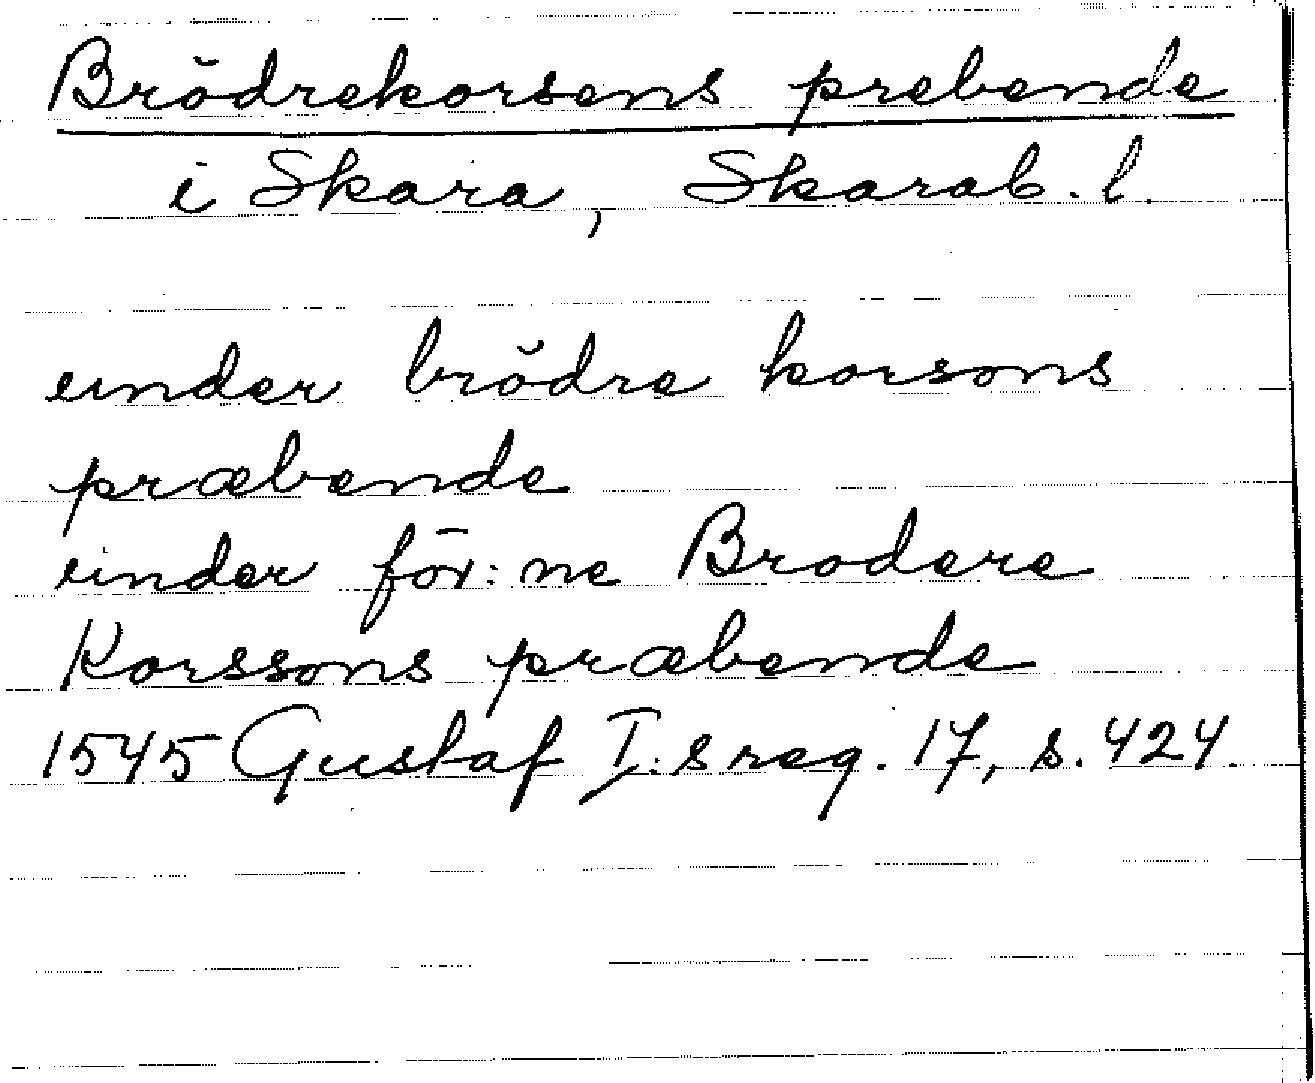 Brödrekorsens prebende
i Skara, Skarab. l.
under brödre korsons
præbende
under för:ne Brodere
Korssons præbende
1545 Gustaf I:s reg. 17, s. 424.